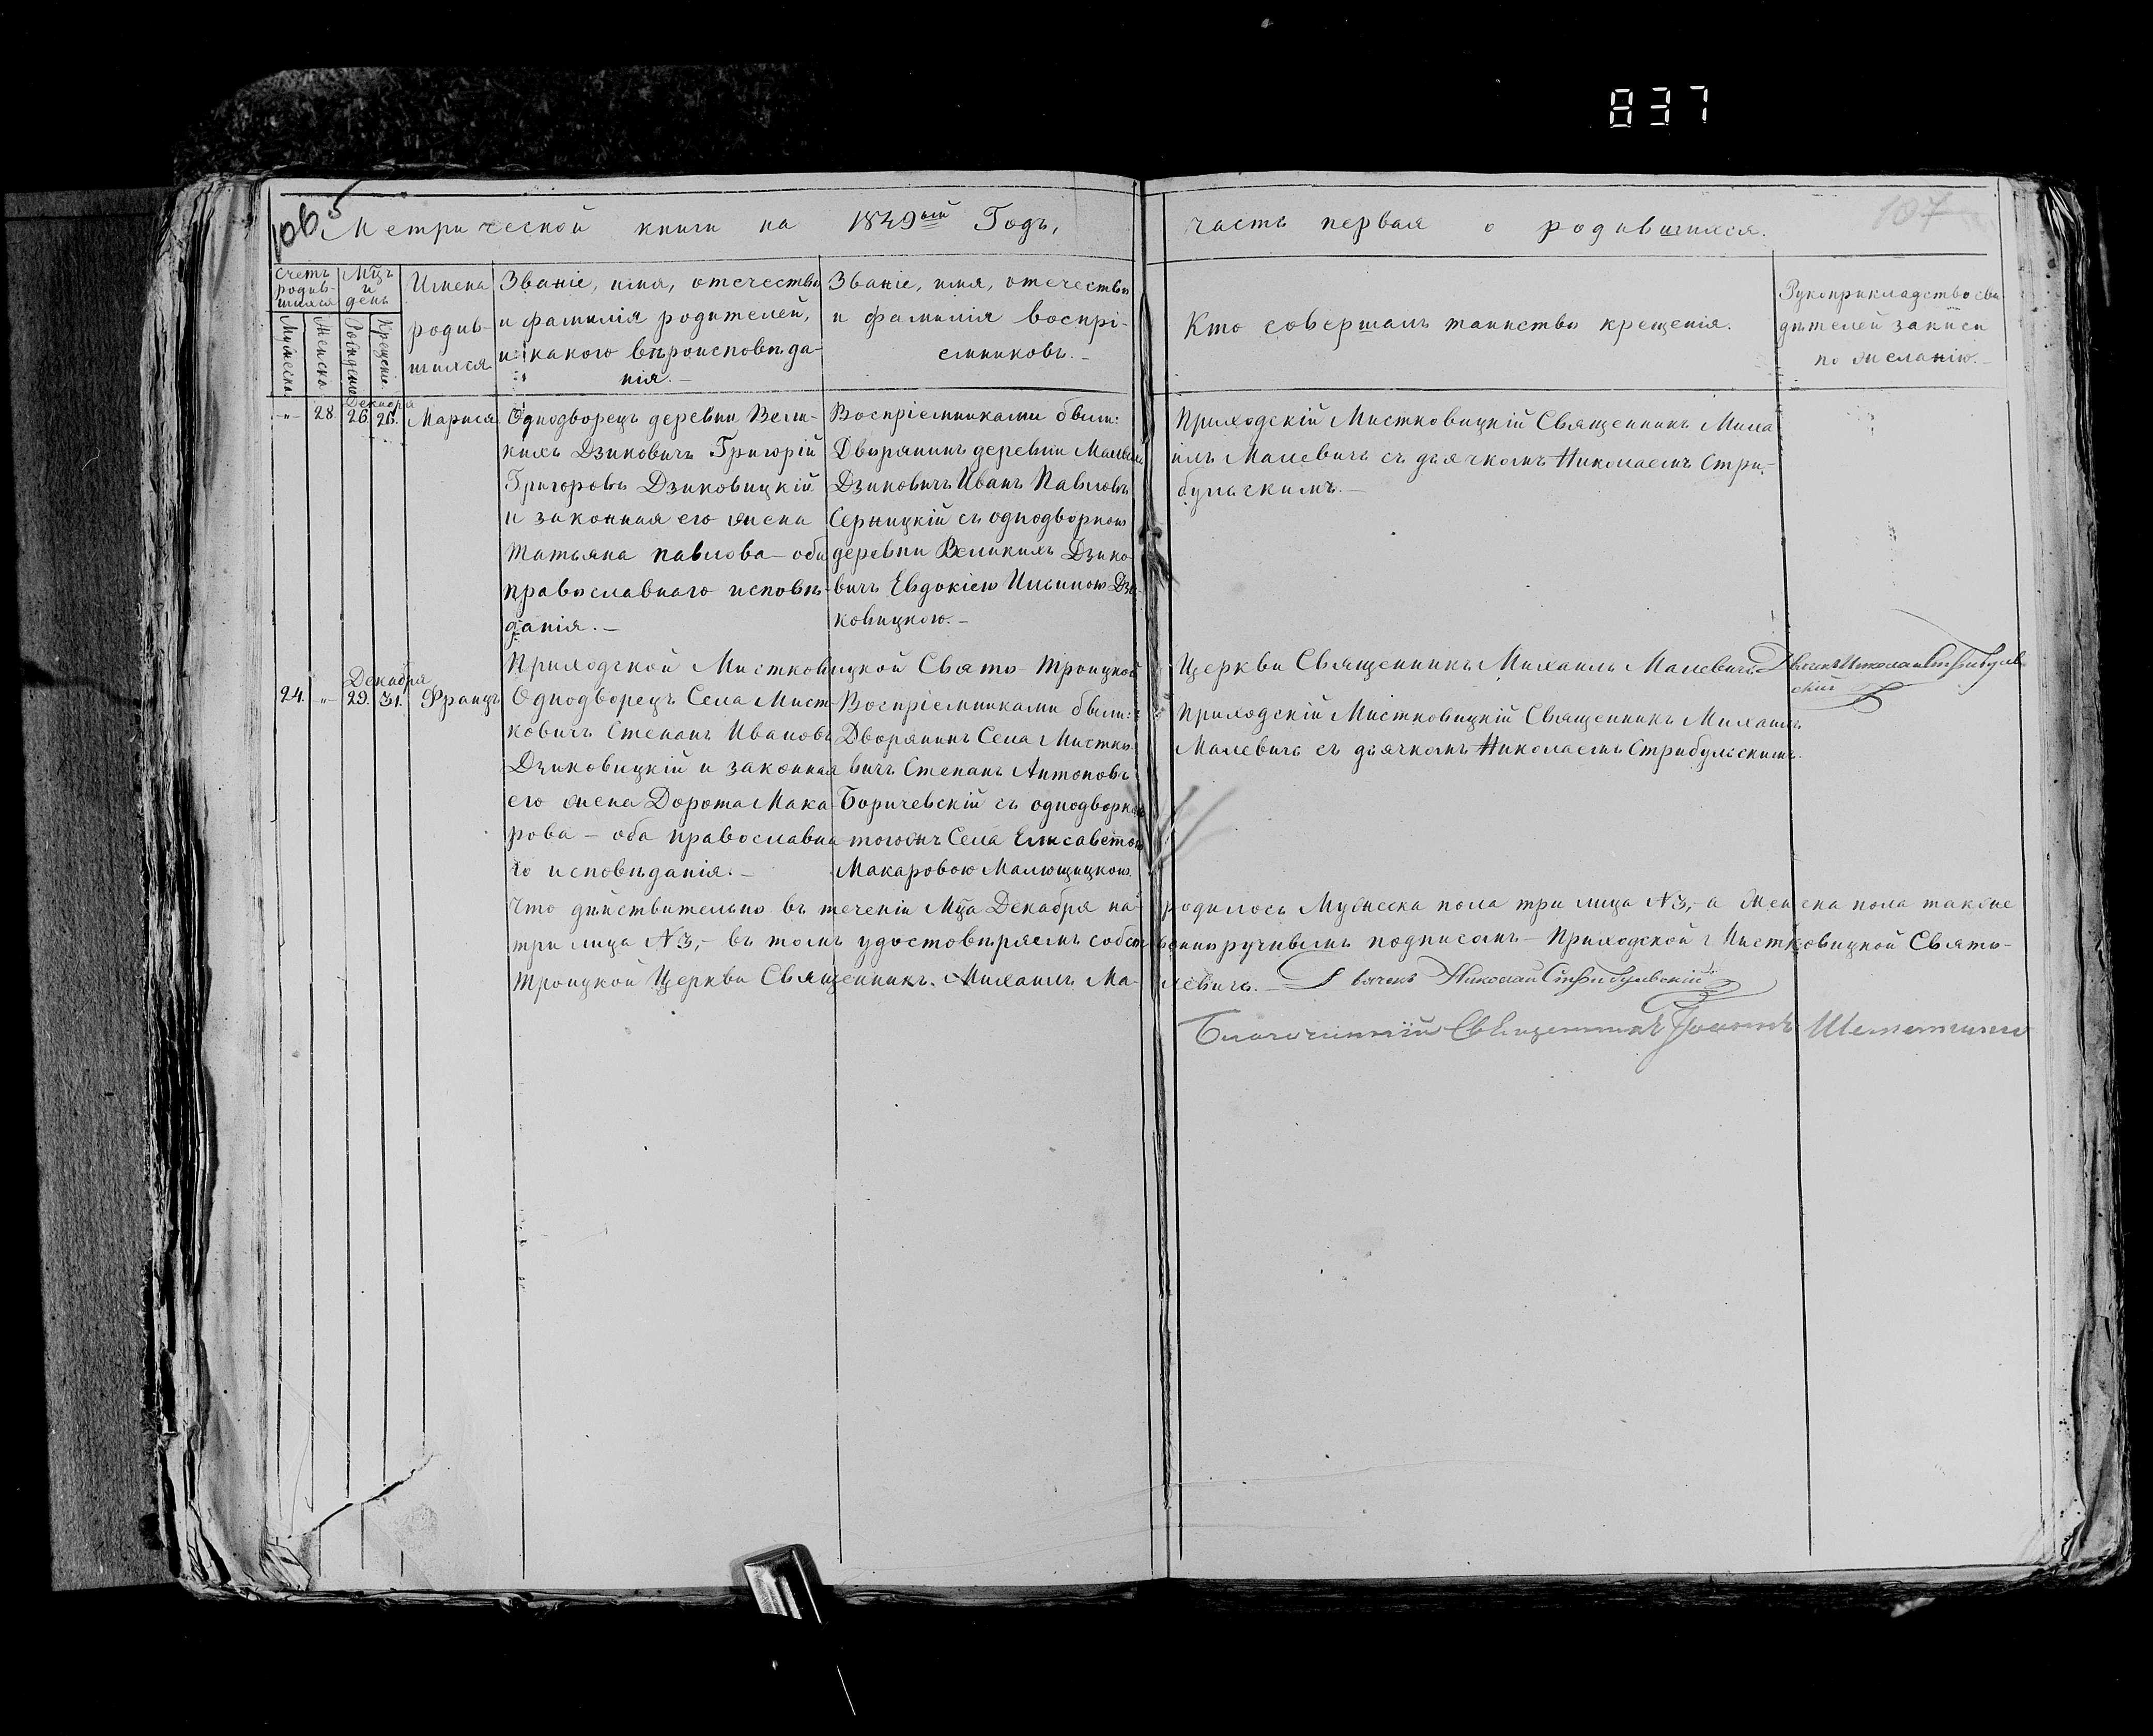 837
106
5
107
Метрической книги на 1849ый Годъ,
часть первая о родившихся.
счетъ родив-шихся
Мцъ и день
Мужеска.
Женска.
Рожденія
Крещенія.
Имена родив-шихся
Званіе, имя, отечество
и фамилія родителей,
и какого вѣроисповѣда-
нія.–
Званіе, имя, отечество
и фамилія воспрі-
емниковъ.–
Кто совершалъ таинство крещенія.
Рукоприкладство сви-
дѣтелей записи
по желанію.–
–"– 28
Декабря
26. 26.
Марися
Однодворецъ деревни Вели-
кихъ Дзиковичъ Григорій
Григоровъ Дзиковицкій
и законная его жена
Татьяна павлова – оба
православнаго исповѣ-
данія.–
Воспріемниками были:
Дворянинъ деревни Малыхъ
Дзиковичъ Иванъ Павловъ
Серницкій съ однодворкою
деревни Великихъ Дзико-
вичъ Евдокіею Ильиною Дзи-
ковицкою.–
Приходскій Мистковицкій Священникъ Миха
илъ Малевичъ съ дьячкомъ Николаемъ Стри-
бульскимъ.–
Приходской Мистковицкой Свято-Троицкой Церкви Священникъ Михаилъ Малевичъ. Дьячекъ Николай Стрибуль
скій
24. –"–
Декабря
29. 31.
Францъ
Однодворецъ Села Мист-
ковичъ Степанъ Ивановъ
Дзиковицкій и законная
его жена Дорота Мака-
рова – оба православна
го исповѣданія.–
Воспріемниками были:
Дворянинъ Села Мистко-
вичъ Степанъ Антоновъ
Боричевскій съ однодворкою
тогожъ Села Елисаветою
Макаровою Малющицкою.
Приходскій Мистковицкій Священникъ Михаилъ
Малевичъ съ дьячкомъ Николаемъ Стрибульскимъ.
Что дѣйствительно въ теченіи Мца Декабря на-родилось Мужеска пола три лица №3,– а Женска пола также
три лица №3,– въ томъ удостовѣряемъ собственноручнымъ подписомъ – Приходской Мистковицкой Свято-
Троицкой Церкви Священникъ Михаилъ Ма-левичъ.– Дьячекъ Николай Стрибульскій
Благочинный Священникъ Іоаннъ